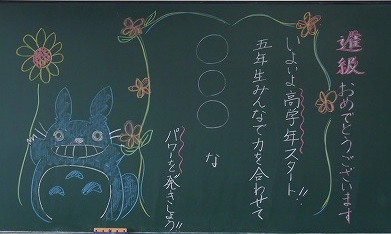 進級おめでとうございます
いよいよ高学年スタート!!
五年生みんなで力を合わせて
〇〇〇な
パワーを発きしよう!!